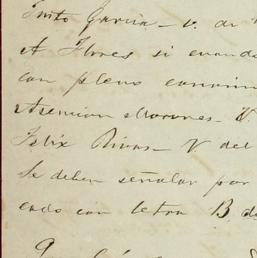 Justo Garcia - v. de
A Flores si cuando
con pleno
Asencion Morones - V.
Felix Rivas - V del
Se deben señalar por
cado con letra B de